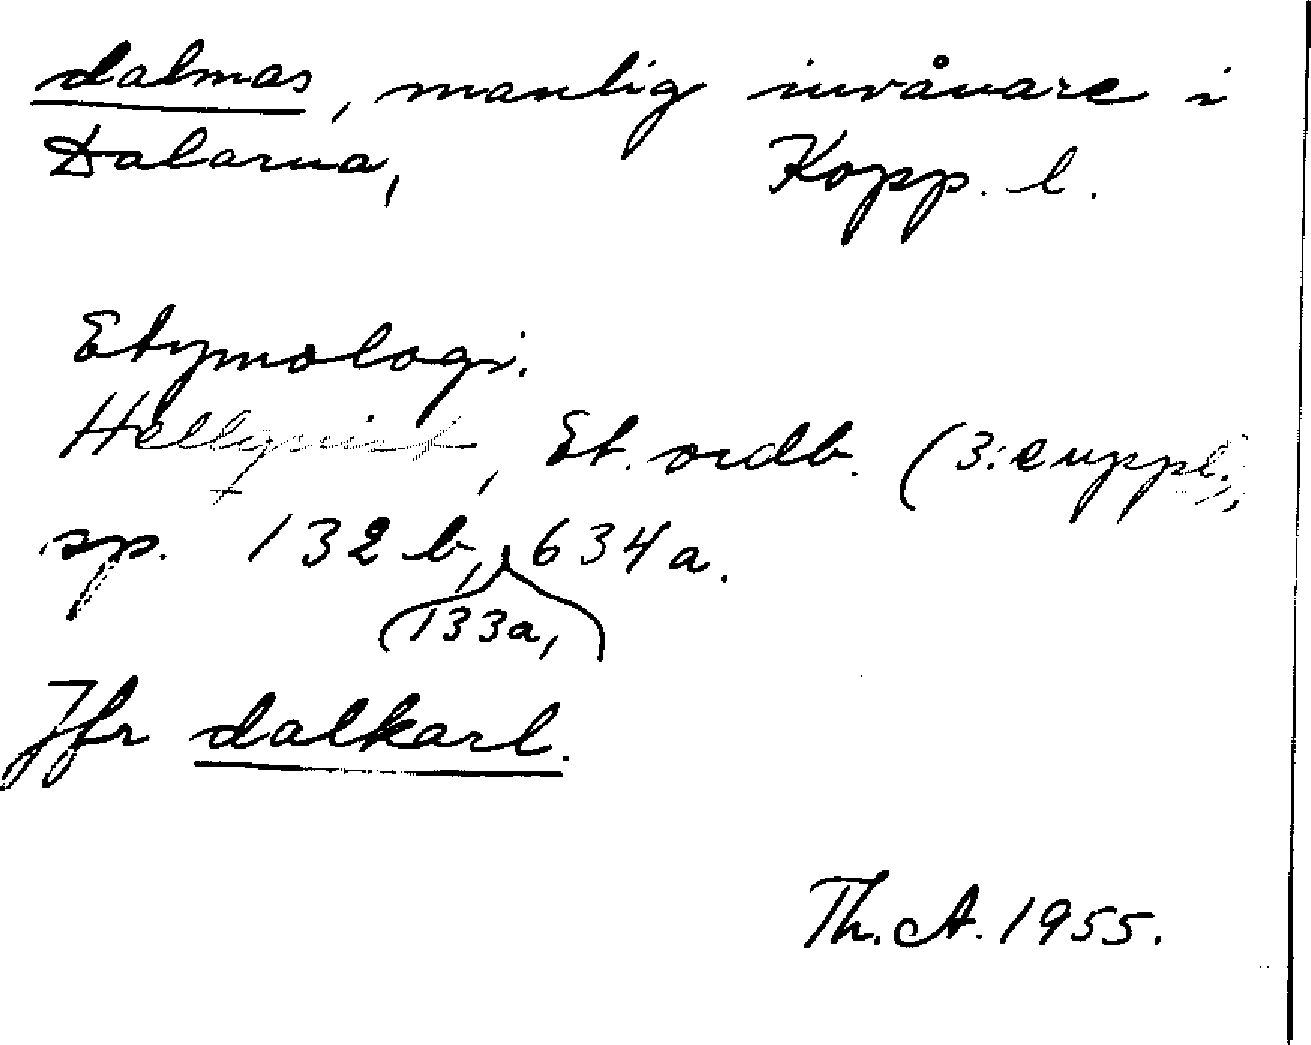 dalmas, manlig invånare i
Dalarna, Kopp. l.
Etymologi.
Hellqvist, Et. ordb. (3:e uppl.),
sp. 132 b, 634 a.
133a,
Jfr dalkarl.
Th. A. 1955.